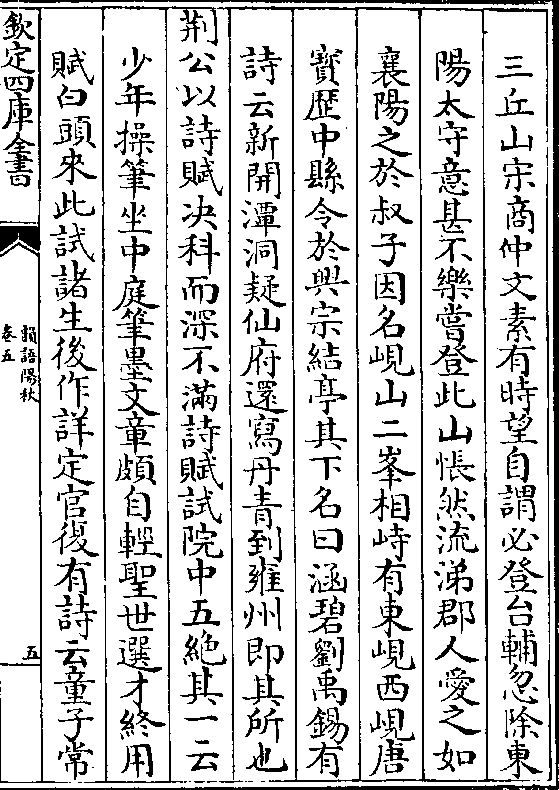 三丘山宋商仲文素有時望自謂必登台輔忽除東
陽太守意甚不樂嘗登此山悵然流涕郡人愛之如
襄陽之於叔子因名峴山二峯相峙有東峴西峴唐
寳歴中縣令於興宗結亭其下名曰涵碧劉禹錫有
詩云新開潭洞疑仙府還寫丹青到雍州即其所也
荆公以詩賦决科而深不滿詩賦試院中五絶其一云
少年操筆坐中庭筆墨文章頗自輕聖世選才終用
賦白頭來此試諸生後作詳定官復有詩云童子常
欽定四庫全書
韻語陽秋
卷五
五